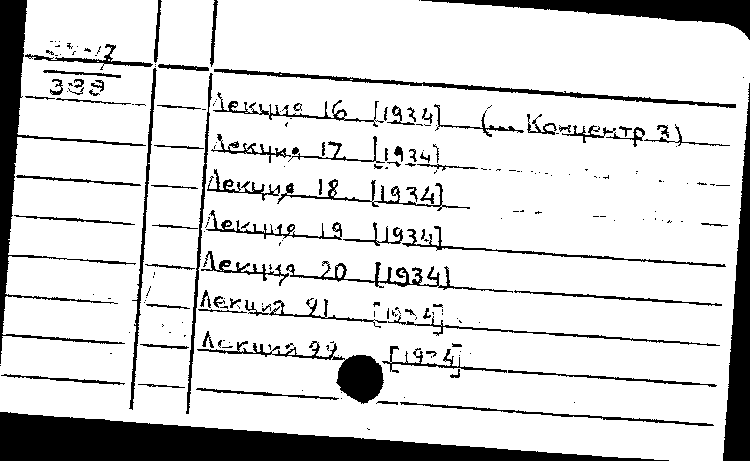 34-17
333
Лекция 16 [1934] (... Концентр 3)
Лекция 17 [1934]
Лекция 18 [1934]
Лекция 19 [1934]
Лекция 20 [1934]
Лекция 21 [1934]
Лекция 22 [1934]